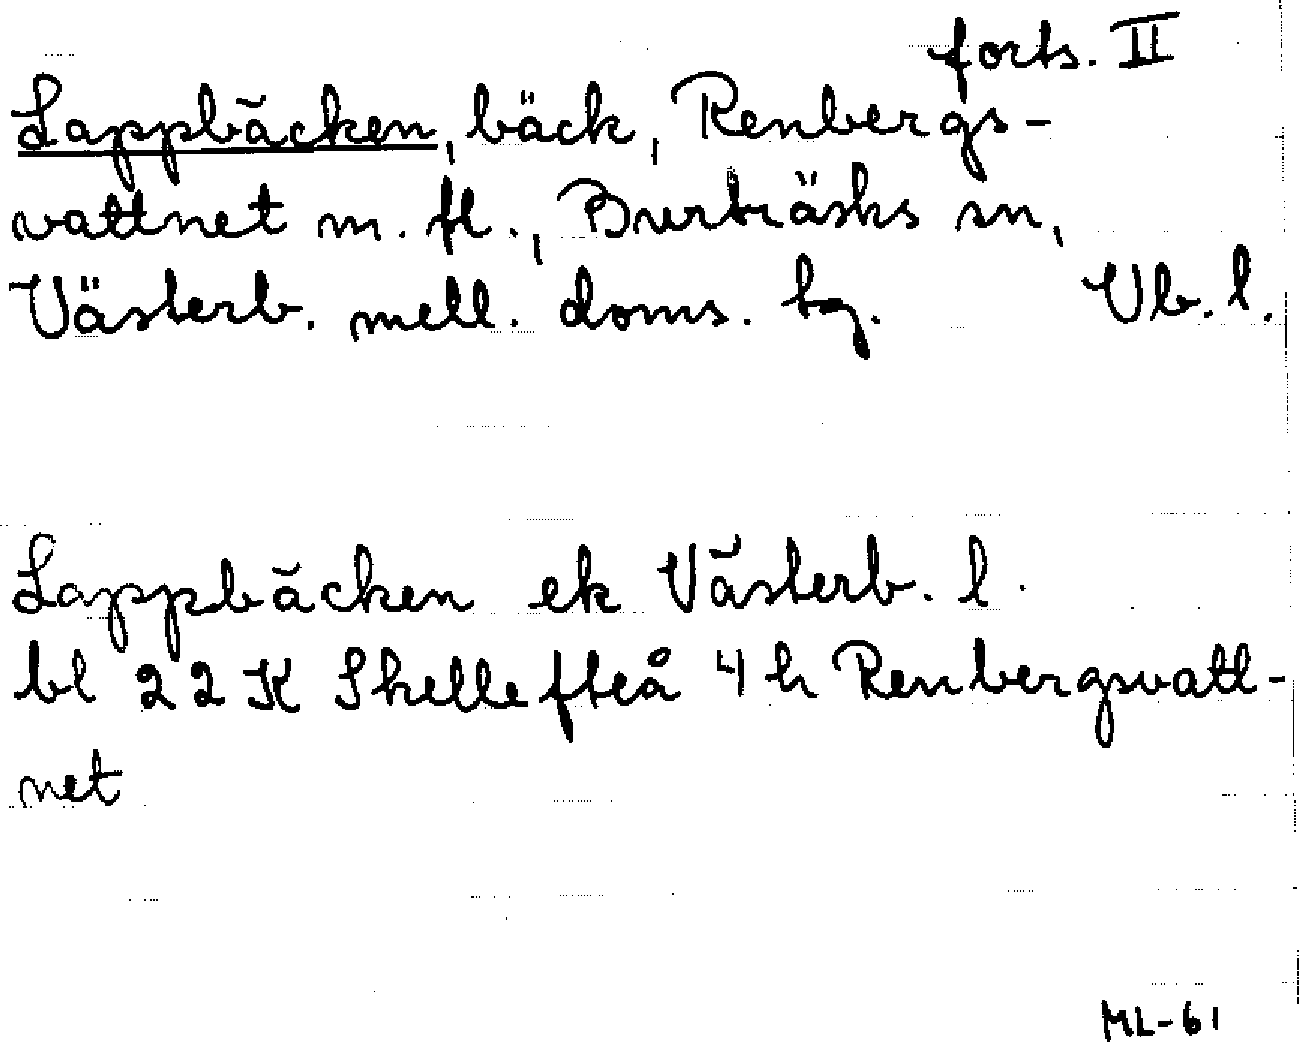 forts. II
Lappbäcken, bäck, Renbergs-
vattnet m. fl., Burträsks sn,
Västerb. mell. doms. tg. Vb. l.
Lappbäcken ek Västerb. l.
bl 22K Skellefteå 4h Renbergsvatt-
net
ML-61